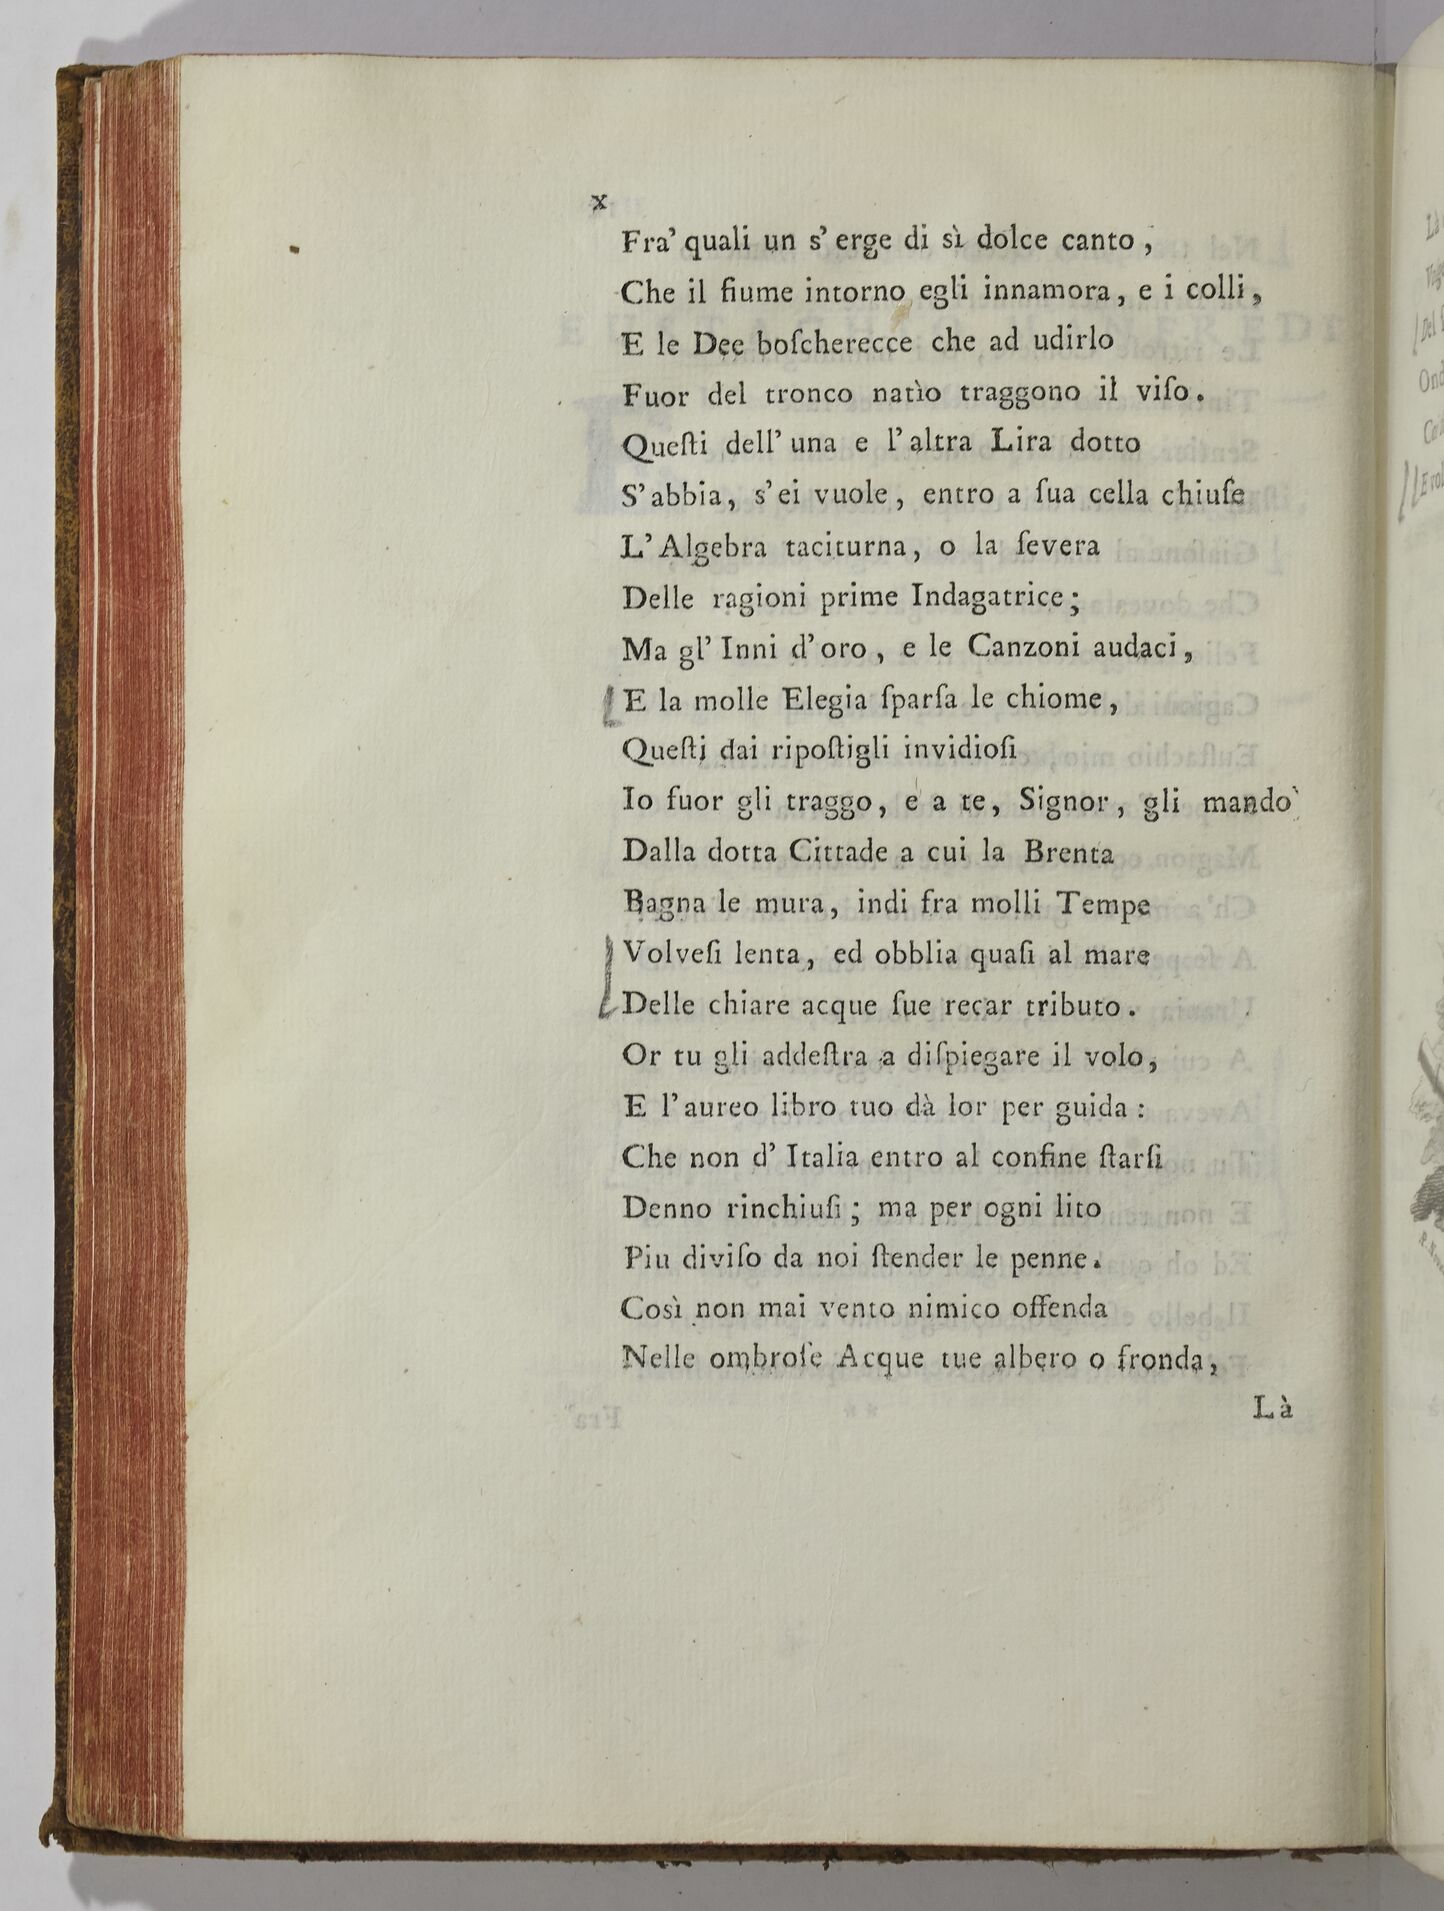 x
Fra' quali un s' erge di sì dolce canto ,
Che il fiume intorno egli innamora, e i colli,
E le Dee boſcherecce che ad udirlo
Fuor del tronco natìo traggono il viſo.
Queſti dell' una e l' altra Lira dotto
S' abbia, s' ei vuole, entro a ſua cella chiuſe
L' Algebra taciturna, o la ſevera
Delle ragioni prime Indagatrice;
Ma gl' Inni d' oro , e le Canzoni audaci,
E la molle Elegia ſparſa le chiome,
Queſti dai ripoſtigli invidioſi
Io fuor gli traggo, e a te, Signor, gli mando
Dalla dotta Cittade a cui la Brenta
Bagna le mura, indi fra molli Tempe
Volveſi lenta, ed obblia quaſi al mare
Delle chiare acque ſue recar tributo.
Or tu gli addeſtra a diſpiegare il volo,
E l' aureo libro tuo dà lor per guida :
Che non d' Italia entro al confine ſtarſi
Denno rinchiuſi; ma per ogni lito
Piu diviſo da noi ſtender le penne.
Così non mai vento nimico offenda
Nelle ombroſe Acque tue albero o fronda,
Là